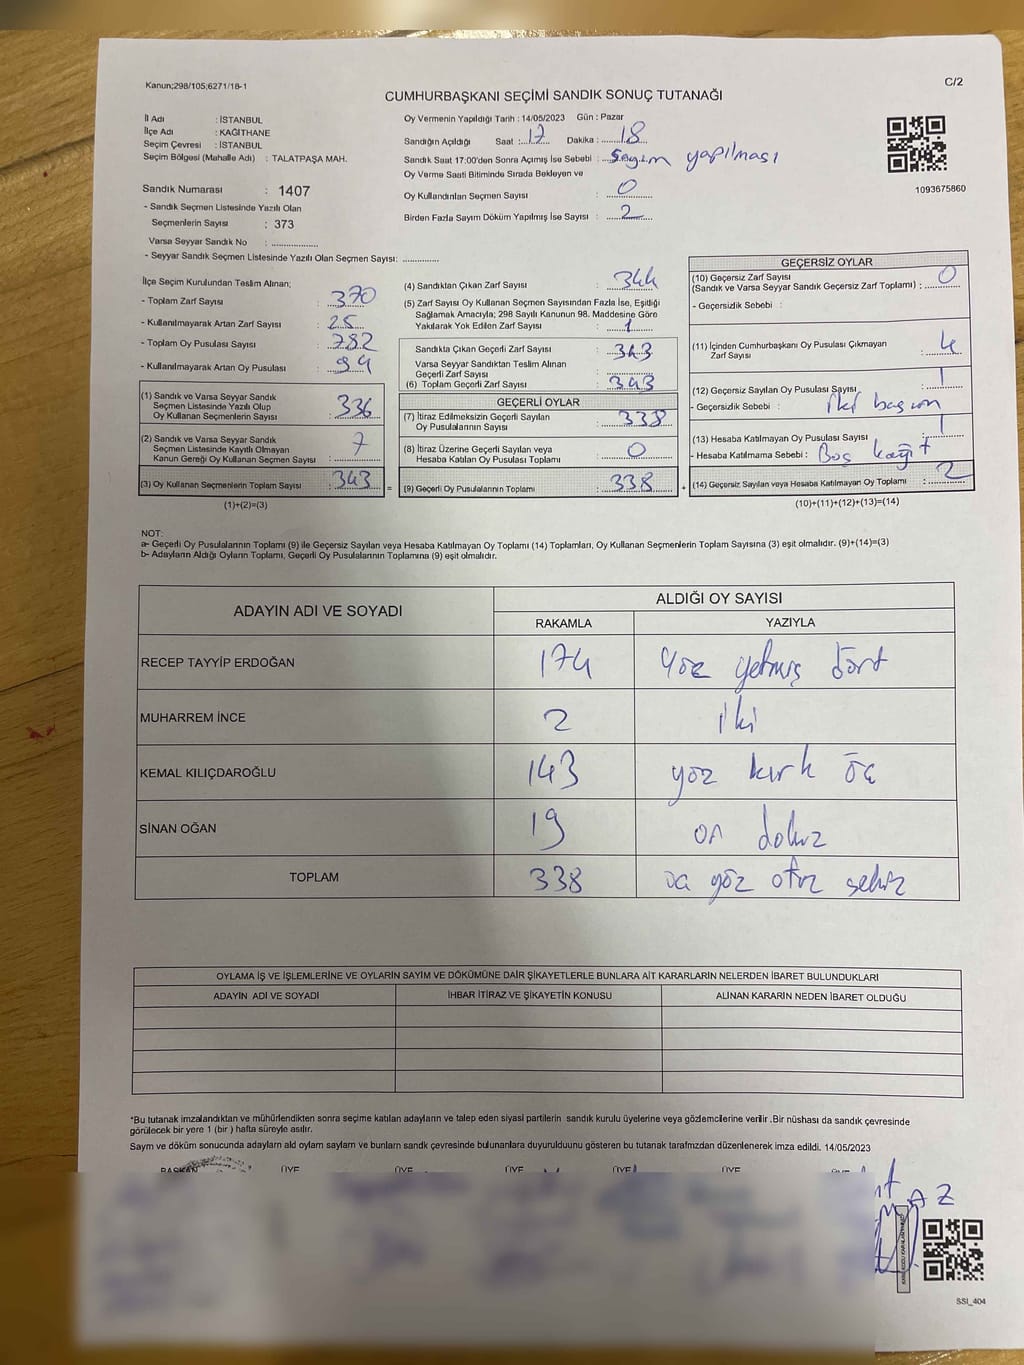 Kanun;298/105;6271/18-1
C/2
CUMHURBAŞKANI SEÇİMİ SANDIK SONUÇ TUTANAĞI
İl Adı : İSTANBUL
İlçe Adı : KAĞITHANE
Seçim Çevresi : İSTANBUL
Seçim Bölgesi (Mahalle Adı) : TALATPAŞA MAH.
Sandık Numarası : 1407
- Sandık Seçmen Listesinde Yazılı Olan
Seçmenlerin Sayısı : 373
Varsa Seyyar Sandık No : ..............
- Seyyar Sandık Seçmen Listesinde Yazılı Olan Seçmen Sayısı: .............
Oy Vermenin Yapıldığı Tarih : 14/05/2023 Gün : Pazar
Sandığın Açıldığı Saat : 17 Dakika : 18
Sandık Saat 17:00'den Sonra Açımış İse Sebebi : Sayım yapılması
Oy Verme Saati Bitiminde Sırada Bekleyen ve
Oy Kullandırılan Seçmen Sayısı : 0
Birden Fazla Sayım Döküm Yapılmış İse Sayısı : 2
1093675860
İlçe Seçim Kurulundan Teslim Alınan;
- Toplam Zarf Sayısı : 370
- Kullanılmayarak Artan Zarf Sayısı : 25
- Toplam Oy Pusulası Sayısı : 382
- Kullanılmayarak Artan Oy Pusulası : 39
(1) Sandık ve Varsa Seyyar Sandık
Seçmen Listesinde Yazılı Olup
Oy Kullanan Seçmenlerin Sayısı : 336
(2) Sandık ve Varsa Seyyar Sandık
Seçmen Listesinde Kayıtlı Olmayan
Kanun Gereği Oy Kullanan Seçmen Sayısı : 7
(3) Oy Kullanan Seçmenlerin Toplam Sayısı : 343 =
(1)+(2)=(3)
(4) Sandıktan Çıkan Zarf Sayısı : 344
(5) Zarf Sayısı Oy Kullanan Seçmen Sayısından Fazla İse, Eşitliği
Sağlamak Amacıyla; 298 Sayılı Kanunun 98. Maddesine Göre
Yakılarak Yok Edilen Zarf Sayısı : 1
Sandıkta Çıkan Geçerli Zarf Sayısı : 343
Varsa Seyyar Sandıktan Teslim Alınan
Geçerli Zarf Sayısı : ..............
(6) Toplam Geçerli Zarf Sayısı : 343
GEÇERLİ OYLAR
(7) İtiraz Edilmeksizin Geçerli Sayılan
Oy Pusulalarının Sayısı : 338
(8) İtiraz Üzerine Geçerli Sayılan veya
Hesaba Katılan Oy Pusulası Toplamı : 0
(9) Geçerli Oy Pusulalarının Toplamı : 338 +
GEÇERSİZ OYLAR
(10) Geçersiz Zarf Sayısı
(Sandık ve Varsa Seyyar Sandık Geçersiz Zarf Toplamı) : 0
- Geçersizlik Sebebi :
(11) İçinden Cumhurbaşkanı Oy Pusulası Çıkmayan
Zarf Sayısı : 4
(12) Geçersiz Sayılan Oy Pusulası Sayısı : 1
- Geçersizlik Sebebi : iki basım
(13) Hesaba Katılmayan Oy Pusulası Sayısı : 1
- Hesaba Katılmama Sebebi : Boş kağıt
(14) Geçersiz Sayılan veya Hesaba Katılmayan Oy Toplamı : 2
(10)+(11)+(12)+(13)=(14)
NOT:
a- Geçerli Oy Pusulalarının Toplamı (9) ile Geçersiz Sayılan veya Hesaba Katılmayan Oy Toplamı (14) Toplamları, Oy Kullanan Seçmenlerin Toplam Sayısına (3) eşit olmalıdır. (9)+(14)=(3)
b- Adayların Aldığı Oyların Toplamı, Geçerli Oy Pusulalarının Toplamına (9) eşit olmalıdır.
ADAYIN ADI VE SOYADI ALDIĞI OY SAYISI
RAKAMLA YAZIYLA
RECEP TAYYİP ERDOĞAN 174 Yüz yetmiş dört
MUHARREM İNCE 2 iki
KEMAL KILIÇDAROĞLU 143 yüz kırk üç
SİNAN OĞAN 19 on dokuz
TOPLAM 338 üç yüz otuz sekiz
OYLAMA İŞ VE İŞLEMLERİNE VE OYLARIN SAYIM VE DÖKÜMÜNE DAİR ŞİKAYETLERLE BUNLARA AİT KARARLARIN NELERDEN İBARET BULUNDUKLARI
ADAYIN ADI VE SOYADI İHBAR İTİRAZ VE ŞİKAYETİN KONUSU ALINAN KARARIN NEDEN İBARET OLDUĞU
*Bu tutanak imzalandıktan ve mühürlendikten sonra seçime katılan adayların ve talep eden siyasi partilerin sandık kurulu üyelerine veya gözlemcilerine verilir .Bir nüshası da sandık çevresinde
görülecek bir yere 1 (bir ) hafta süreyle asılır.
Sayım ve döküm sonucunda adayların ald oyların sayların ve bunların sandk çevresinde bulunanlara duyurulduunu gösteren bu tutanak tarafmzdan düzenlenerek imza edildi. 14/05/2023
BAŞKAN ÜYE ÜYE ÜYE ÜYE ÜYE
SSI_404